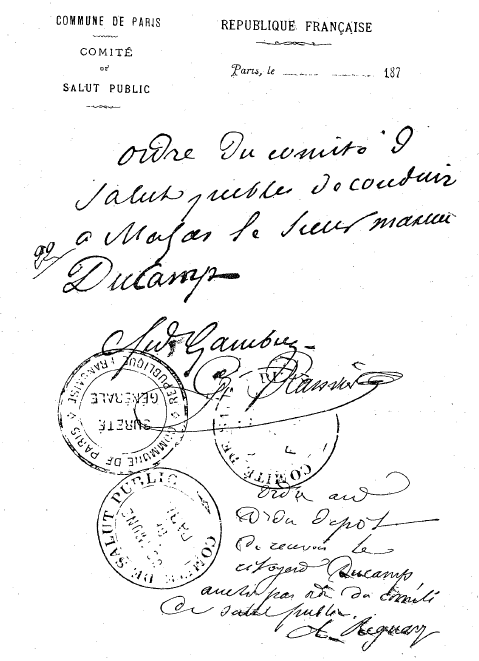 COMMUNE DE PARIS
COMITÉ
DE
SALUT PUBLIC
REPUBLIQUE FRANÇAISE
Paris, le 187
ordre du comité d
salut public de conduir
a Mazas le sieur maxime
Ducamp
Gambon
G. Ranvier
REPUBLIQUE FRANÇAISE
COMMUNE DE PARIS
SURETÉ
GÉNÉRALE
COMITÉ DE
COMITÉ DE SALUT PUBLIC
COMMUNE
DE
PARIS
ordre au
du depot
de recevoir le
citoyen Ducamp
par du comité
de salut public.